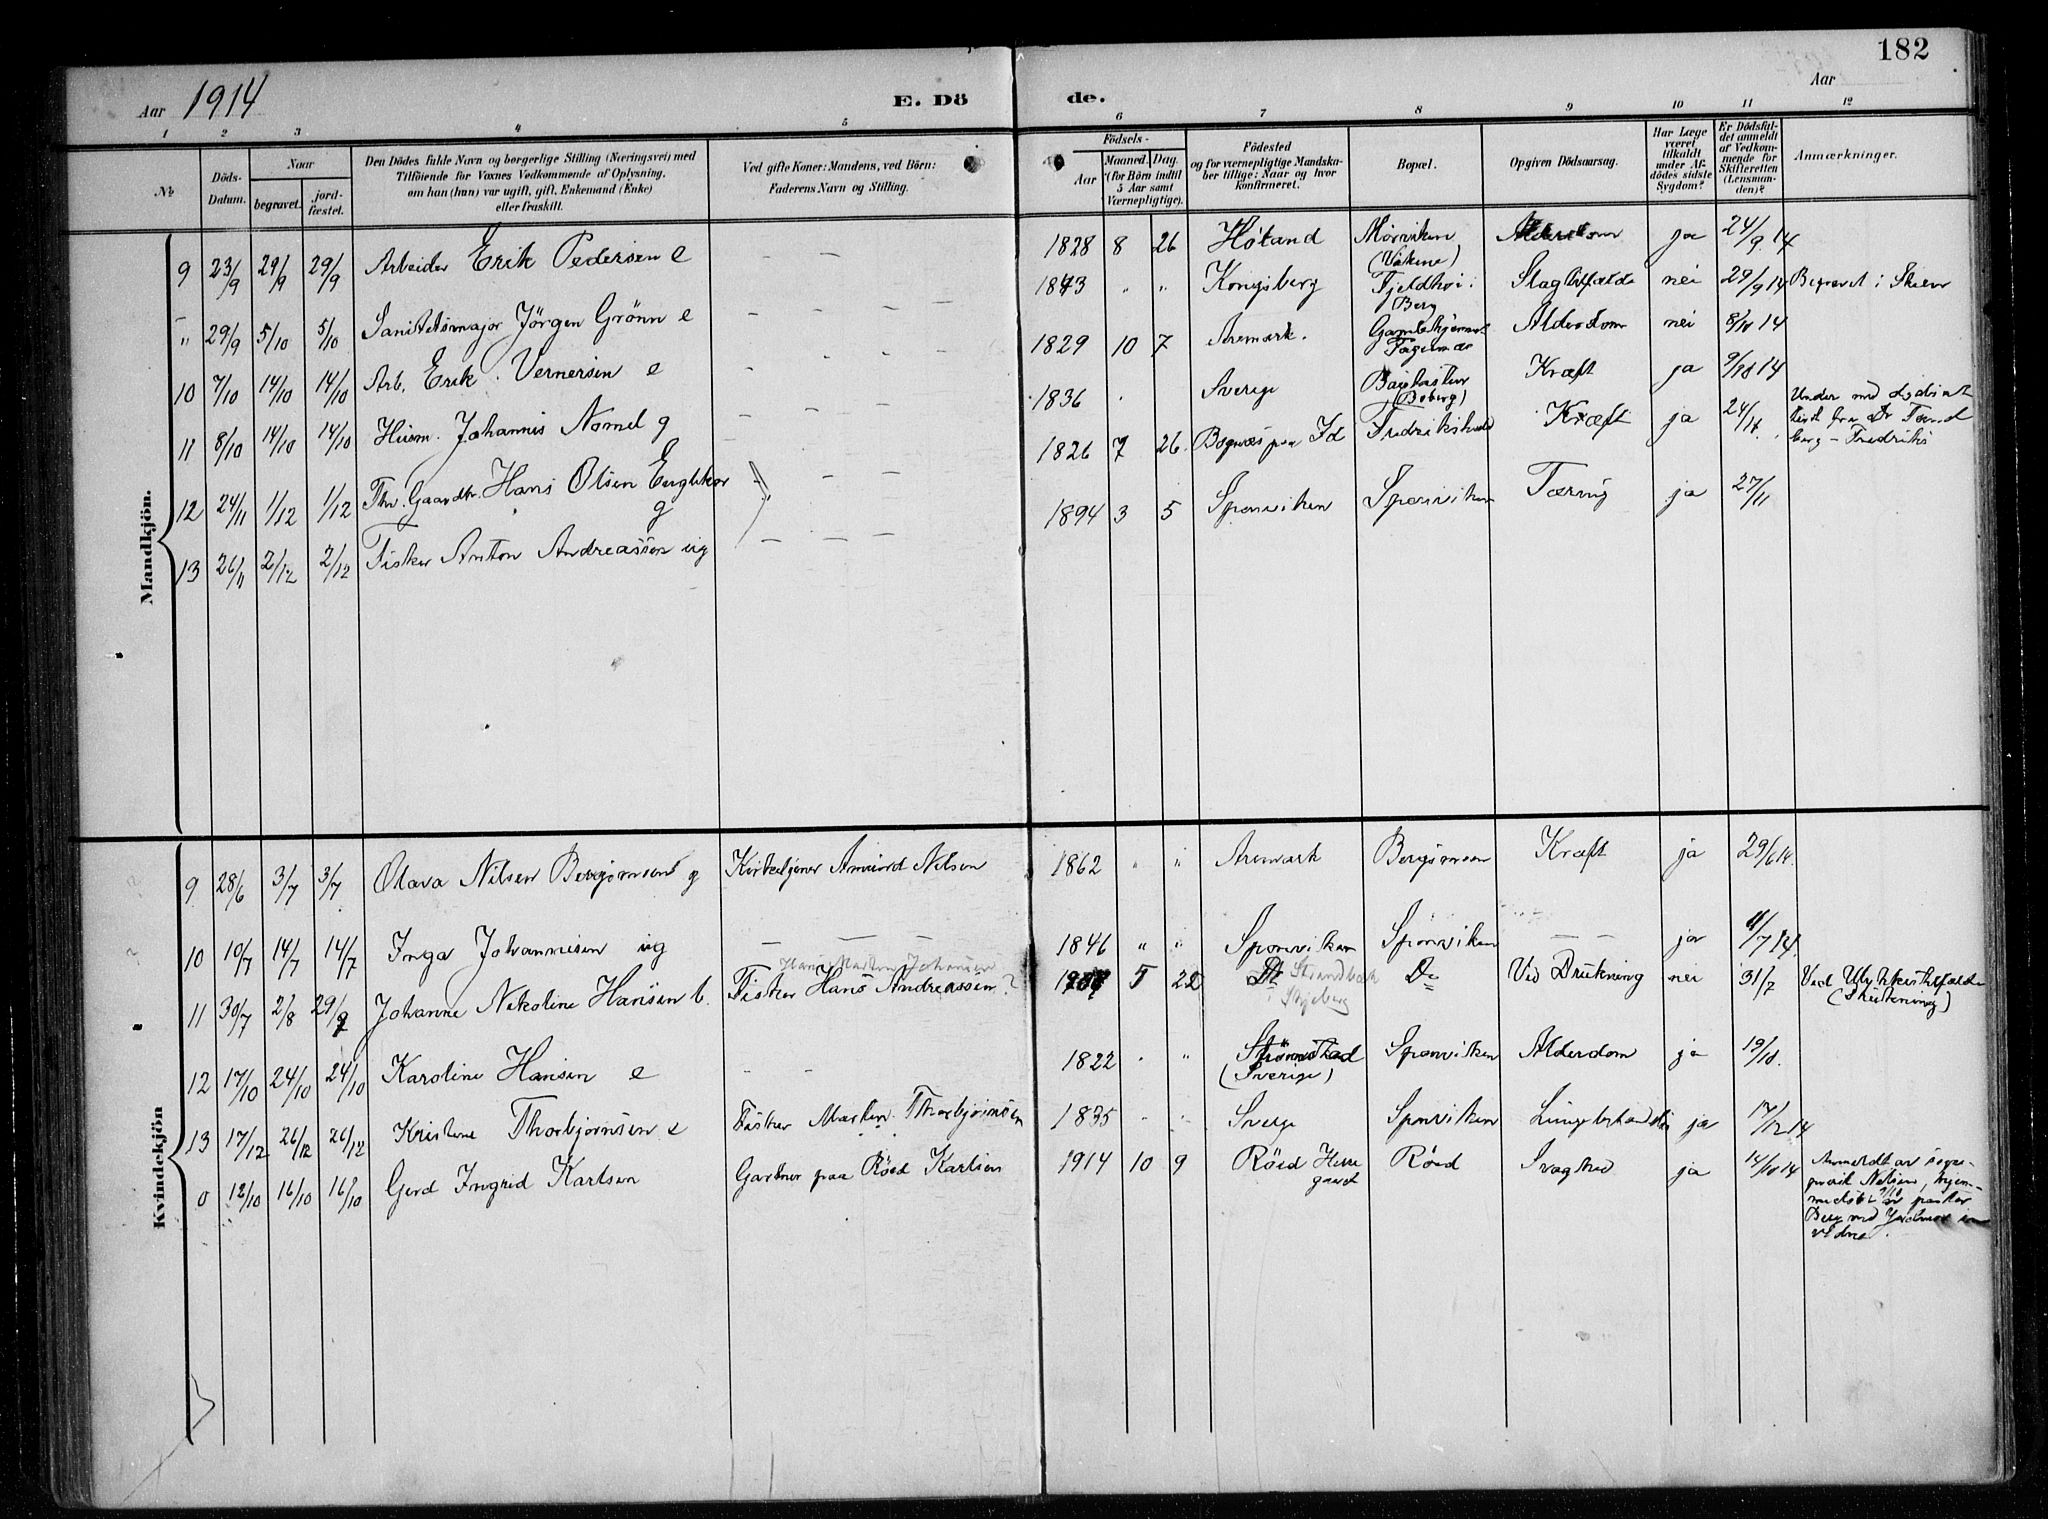 182
Aar 1914
E. Døde.
Aar
1 2 3 4 5 6 7 8 9 10 11 12
№
Døds-Datum.
Naar
begravet.
jordfæstet.
Den Dödes fulde Navn og borgerlige Stilling (Næringsvei) med
Tilföiende for Voxnes Vedkommende af Oplysning,
om han (hun) var ugift, gift, Enkemand (Enke)
eller fraskilt.
Ved gifte Koner: Mandens, ved Börn:
Faderens Navn og Stilling.
Födsels-
Aar
Maaned. Dag.
(for Börn indtil
5 Aar samt
Værnepligtige).
Födested
og for værnepligtige Mandska-
ber tillige: Naar og hvor
konfirmeret.
Bopæl.
Opgiven Dödsaarsag.
Har Læge
været
tilkaldt
under Af-
dödes sidste
Sygdom?
Er Dödsfal-
det anmeldt
af Vedkom-
mende for
Skifteretten
(Lensman-
den)?
Anmærkninger.
Mandkjön.
9 23/9 29/9 29/9 Arbeider Erik Pedersen e — — 1828 8 26 Høland Mørviken Alderdom ja 24/9 14
" 29/9 5/10 5/10 Sanitetsmajor Jörgen Grönn e — — — 1843 " " Kongsberg Fjeldhøi i Berg Slagtilfælde nei 29/9 14 Begravet i Skien
10 7/10 14/10 14/10 Arb. Erik Vernersen e 1829 10 7 Aremark. Alderdom nei 8/10 14
11 8/10 14/10 14/10 Husm. Johannis Nomel g — — — 1836 Sverige Kræft ja 9/10 14
12 24/11 1/12 1/12 Hans Olsen g — — 1826 7 26 Bognæs paa Id Fredrikshald Kræft ja 24/11
13 26/11 2/12 2/12 Fisker Anton Andreassen ug — — — 1894 3 5 Sponviken Sponviken Tæring ja 27/11
Kvindekjön
9 28/6 3/7 3/7 Olava Nilsen Bergsmoen g Kirketjener Amund Nilsen 1862 " " Aremark Bergsmoen Kræft ja 29/6 14.
10 10/7 14/7 14/7 Inga Johannisen ug — — — 1846 " " Sponviken Sponviken — — ja 11/7 14
Hans Martin Johansen
11 30/7 2/8 29/9 Johanne Nikoline Hansen b. Fisker Hans Andreassen ? 5 22 Strandbak i Skjeberg Do Ved Drukning nei 31/7 Ved Ulykkestilfælde
(Drukning)
12 17/10 24/10 24/10 Karoline Hansen e — — 1822 " " Strømstad Sponviken Alderdom ja 19/10.
(Sverige)
13 17/12 26/12 26/12 Kristine Thorbjørnsen e Fisker Martin Thorbjørnsen 1835 " " Sverige Sponviken ja 17/12 14
0 12/10 16/10 16/10 Gerd Ingrid Karlsen Gartner paa Røed Karlsen 1914 10 9 Røed Herregaard Røed Svaghed ja 14/10 14 Anmeldt av